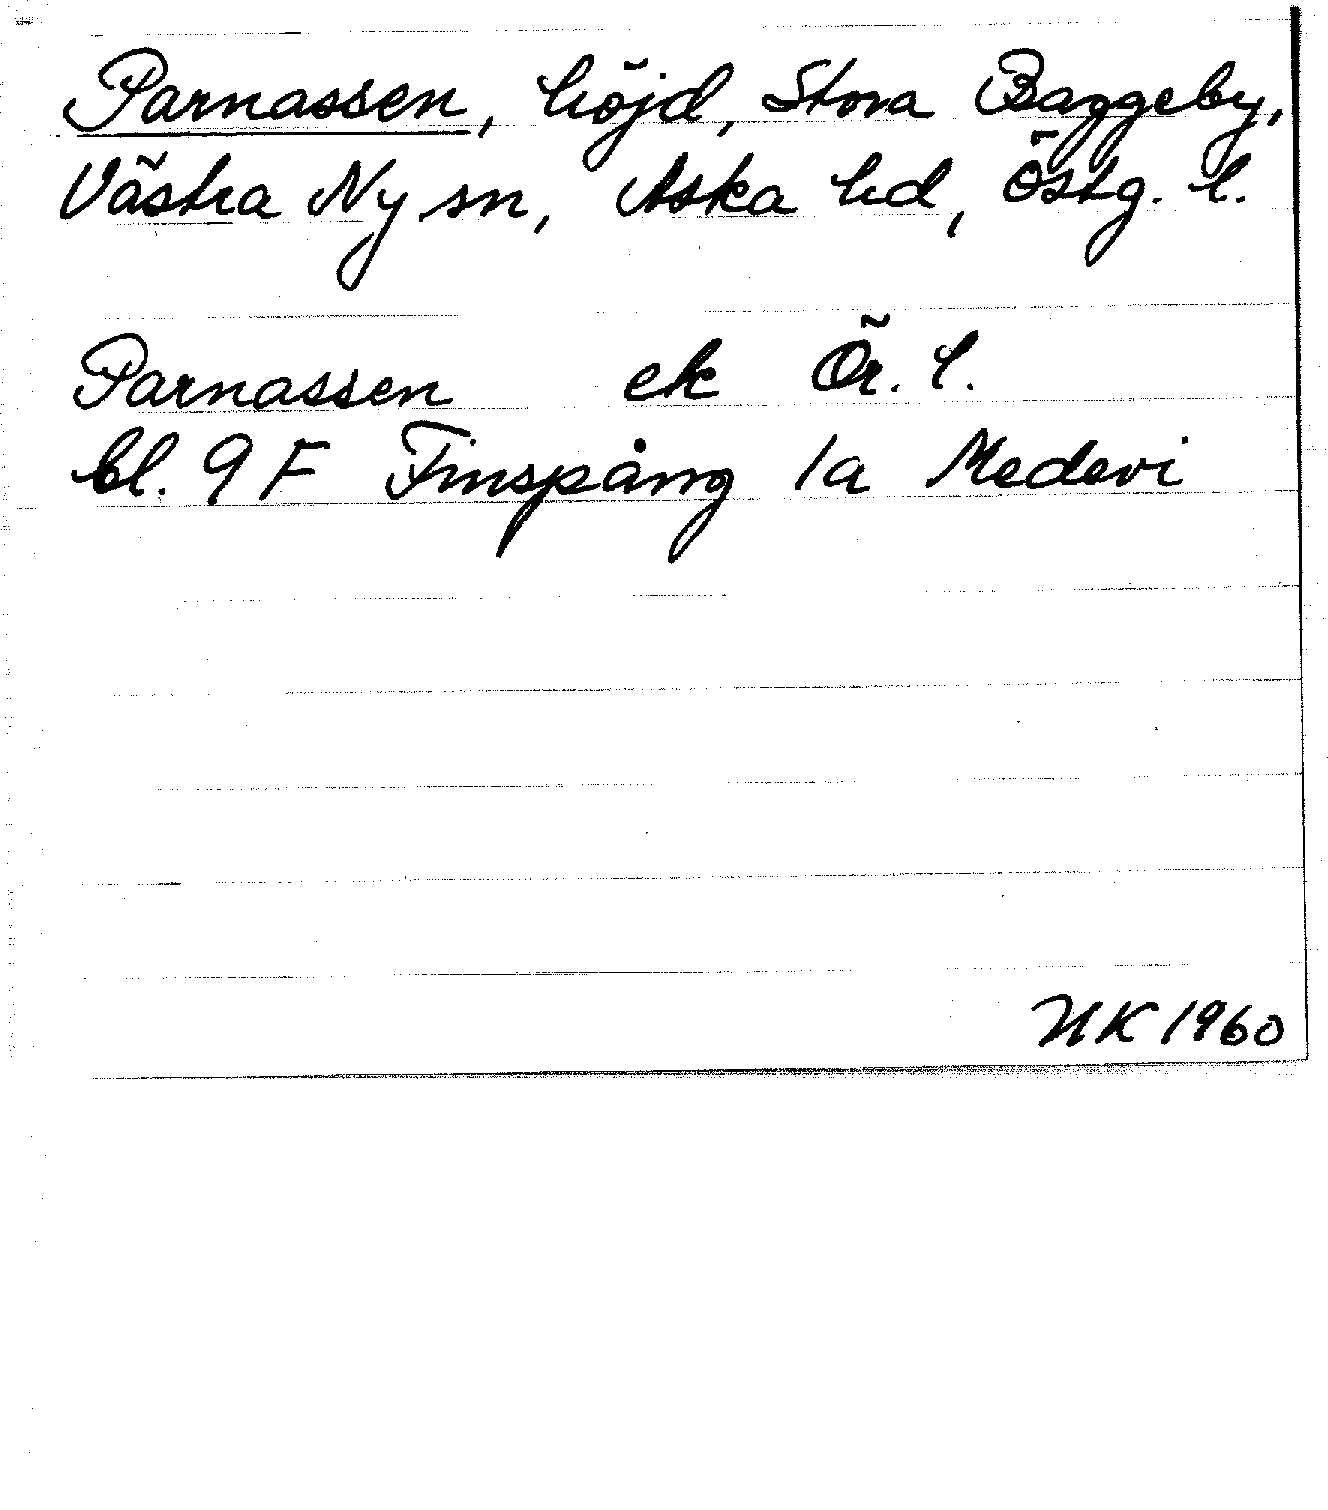 Parnassen, höjd, Stora Baggeby,
Västra Ny sn, Aska hd, Östg. l.
Parnassen ek Ör. l.
bl. 9 F Finspång 1a Medevi
NK 1960